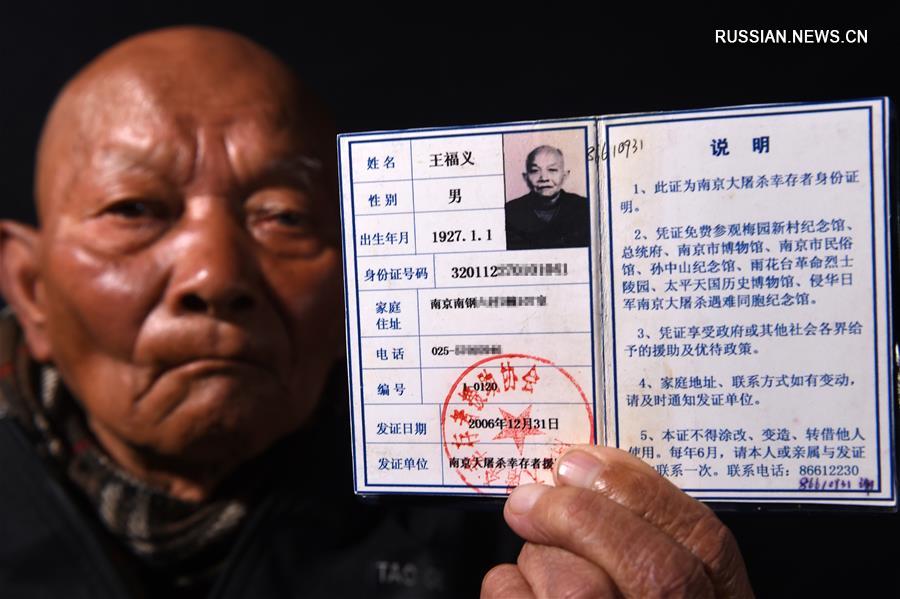 RUSSIAN.NEWS.CN
姓 名 王福义
性 别 男
出生年月 1927.1.1
身份证号码 320112
家庭
住址
南京南钢
电 话 025-
编 号 1-0120
发证日期 2006年12月31日
发证单位 南京大屠杀幸存者援
86610931
说 明
1、此证为南京大屠杀幸存者身份证
明。
2、凭证免费参观梅园新村纪念馆、
总统府、南京市博物馆、南京市民俗
馆、孙中山纪念馆、雨花台革命烈士
陵园、太平天国历史博物馆、侵华日
军南京大屠杀遇难同胞纪念馆。
3、凭证享受政府或其他社会各界给
予的援助及优待政策。
4、家庭地址、联系方式如有变动,
请及时通知发证单位。
5、本证不得涂改、变造、转借他人
使用。每年6月，请本人或亲属与发证
联系一次。联系电话：86612230
86610931
TAO